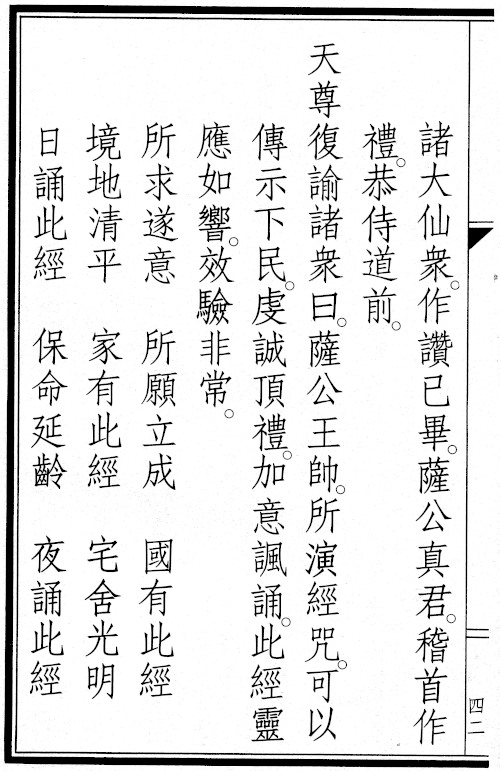 諸大仙衆。作讚已畢。薩公真君。稽首作
禮。恭侍道前。
天尊復諭諸衆曰。薩公王帥。所演經咒。可以
傳示下民。虔誠頂禮。加意諷誦。此經靈
應如響。效驗非常。
所求遂意　所願立成　國有此經
境地清平　家有此經　宅舍光明
日誦此經　保命延齡　夜誦此經
四二